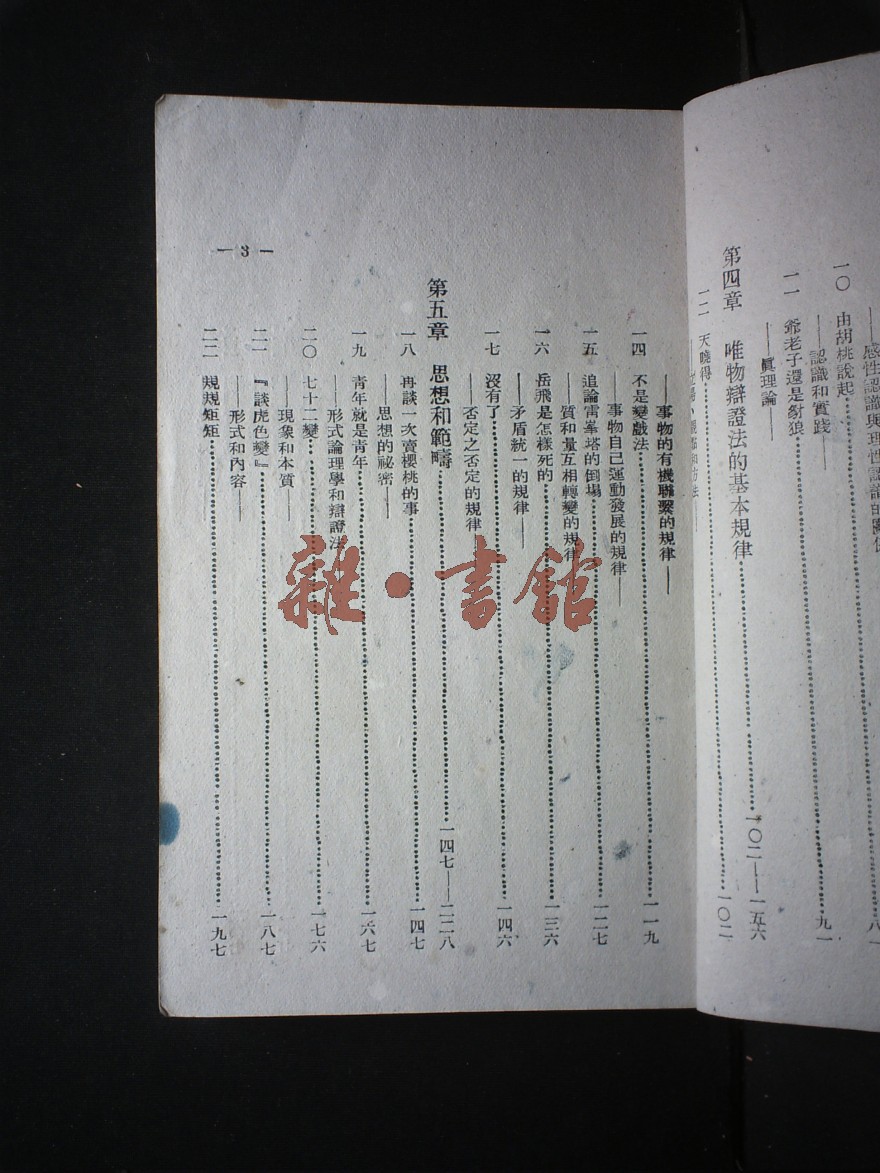 ——感性認識與理性認識的關係
一〇 由胡桃說起……八一
——認識和實踐——
一一 爺老子還是豺狼……九一
——眞理論——
第四章 唯物辯證法的基本規律……一〇二—一五六
一二 天曉得……一〇二
——事物的有機聯繫的規律——
一四 不是變戲法……一一九
——事物自己運動發展的規律——
一五 追論雷峯塔的倒塲……一二七
——質和量互相轉變的規律
一六 岳飛是怎樣死的……一三六
——矛盾統一的規律——
一七 沒有了……一四六
——否定之否定的規律
第五章 思想和範疇……一四七—二二八
一八 再談一次賣櫻桃的事……一四七
——思想的祕密——
一九 青年就是青年……一六七
——形式論理學和辯證法——
二〇 七十二變……一七六
——現象和本質——
二一 『談虎色變』……一八七
——形式和內容——
二二 規規矩矩……一九七
— 3 —
雜·書館